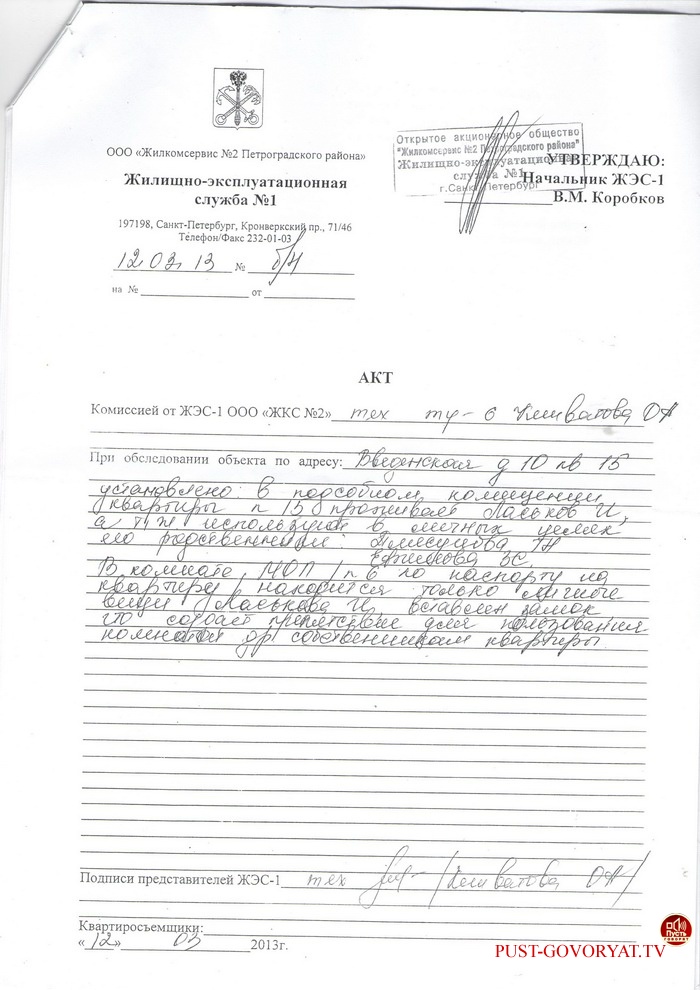 ООО «Жилкомсервис №2 Петроградского района»
Жилищно-эксплуатационная
служба №1
197198, Санкт-Петербург, Кронверкский пр., 71/46
Телефон/Факс 232-01-03
12.03.13 № б/н
на № от
Открытое акционерное общество
"Жилкомсервис №2 Петроградского района"
Жилищно-эксплуатационная
служба №1
г.Санкт-Петербург
УТВЕРЖДАЮ:
Начальник ЖЭС-1
В.М. Коробков
АКТ
Комиссией от ЖЭС-1 ООО «ЖКС №2» тех ОА
При обследовании объекта по адресу: Введенская д 10 кв 15
установлено: в подсобном помещении
квартиры п 15 проживает Ласьков И,
а т/ж используют в личных целях
его родственники:
В комнате МОП /п 6 по паспорту на
квартиру находится только личные
вещи Ласькова И, вставлен замок
что создает препятствие для пользования
комнатой др собственникам квартиры.
Подписи представителей ЖЭС-1 тех ОА/
Квартиросъемщики:
«12» 03 2013г.
Пусть
говорят
PUST-GOVORYAT.TV